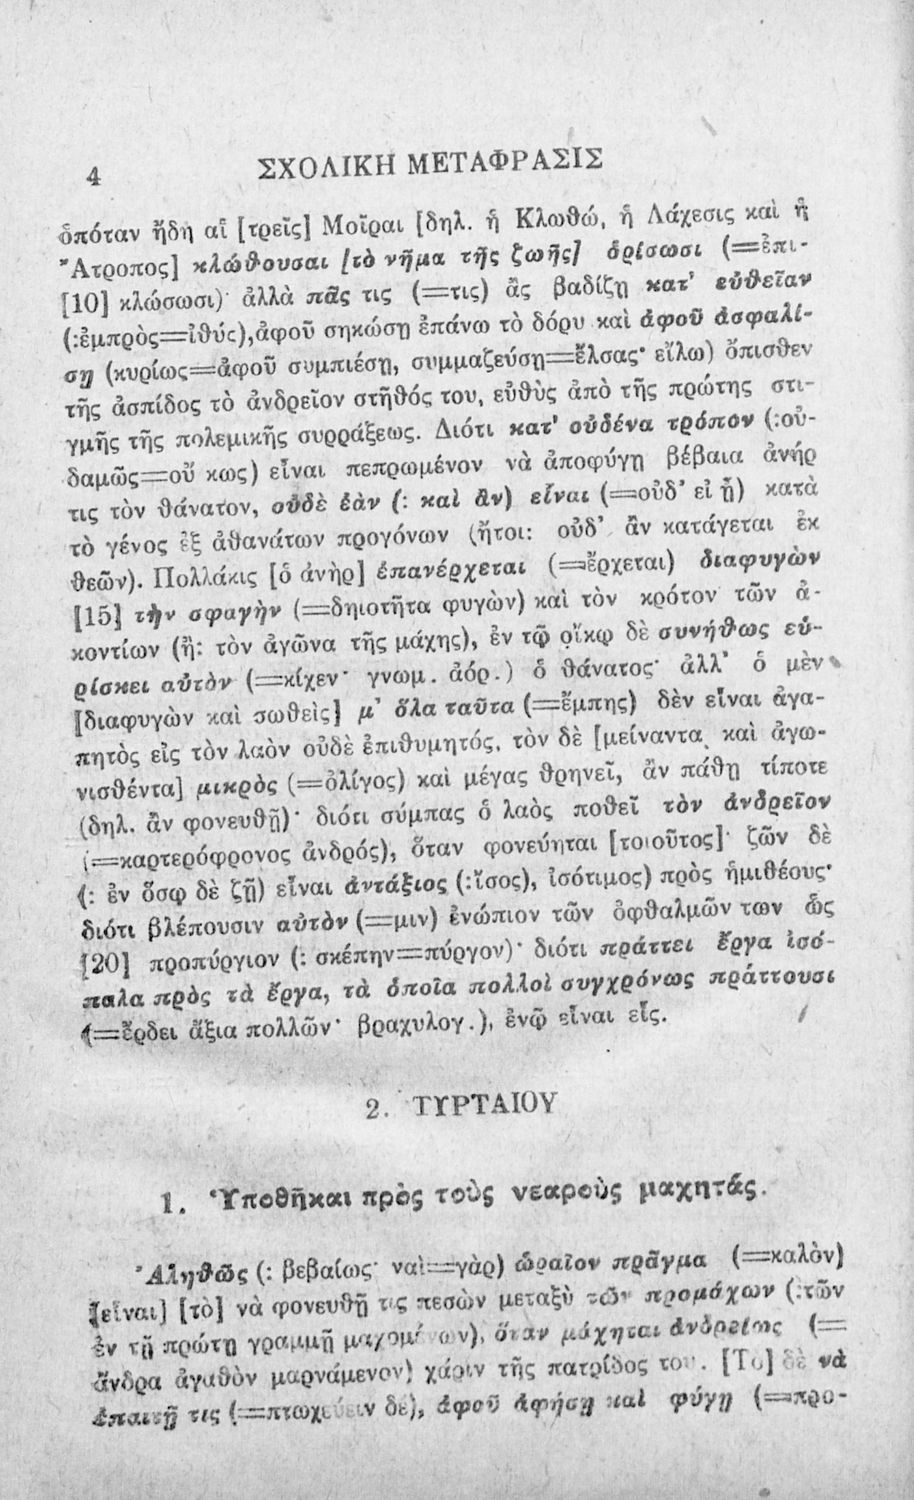 4
ΣΧΟΛΙΚΗ ΜΕΤΑΦΡΑΣΙΣ
ὁπόταν ἤδη αἱ [τρεῖς] Μοῖραι [δηλ. ἡ Κλωθώ, ἡ Λάχεσις καὶ ἡ
Ἄτροπος] κλώθουσαι [τὸ νῆμα τῆς ζωῆς] ὁρίσωσι (=ἐπι-
[10] κλώσωσι)· ἀλλὰ πᾶς τις (=τις) ἂς βαδίζῃ κατ' εὐθεῖαν
(:ἐμπρὸς=ἰθύς), ἀφοῦ σηκώσῃ ἐπάνω τὸ δόρυ καὶ ἀφοῦ ἀσφαλί-
σῃ (κυρίως=ἀφοῦ συμπιέσῃ, συμμαζεύσῃ=ἔλσας· εἴλω) ὄπισθεν
τῆς ἀσπίδος τὸ ἀνδρεῖον στῆθός του, εὐθὺς ἀπὸ τῆς πρώτης στι-
γμῆς τῆς πολεμικῆς συρράξεως. Διότι κατ' οὐδένα τρόπον (:οὐ-
δαμῶς=οὔ κως) εἶναι πεπρωμένον νὰ ἀποφύγῃ βέβαια ἀνήρ
τις τὸν θάνατον, οὐδὲ ἐὰν (: καὶ ἂν) εἶναι (=οὐδ' εἰ ᾖ) κατὰ
τὸ γένος ἐξ ἀθανάτων προγόνων (ἤτοι: οὐδ' ἂν κατάγεται ἐκ
θεῶν). Πολλάκις [ὁ ἀνὴρ] ἐπανέρχεται (=ἔρχεται) διαφυγὼν
[15] τὴν σφαγὴν (=δηιοτῆτα φυγὼν) καὶ τὸν κρότον τῶν ἀ-
κοντίων (ἢ: τὸν ἀγῶνα τῆς μάχης), ἐν τῷ οἴκῳ δὲ συνήθως εὑ-
ρίσκει αὐτὸν (=κίχεν· γνωμ. ἀόρ.) ὁ θάνατος· ἀλλ' ὁ μὲν
[διαφυγὼν καὶ σωθεὶς] μ' ὅλα ταῦτα (=ἔμπης) δὲν εἶναι ἀγα-
πητὸς εἰς τὸν λαὸν οὐδὲ ἐπιθυμητός, τὸν δὲ [μείναντα καὶ ἀγω-
νισθέντα] μικρὸς (=ὀλίγος) καὶ μέγας θρηνεῖ, ἂν πάθῃ τίποτε
(δηλ. ἂν φονευθῇ)· διότι σύμπας ὁ λαὸς ποθεῖ τὸν ἀνδρεῖον
(=καρτερόφρονος ἀνδρός), ὅταν φονεύηται [τοιοῦτος]· ζῶν δὲ
(: ἐν ὅσῳ δὲ ζῇ) εἶναι ἀντάξιος (:ἴσος), ἰσότιμος) πρὸς ἡμιθέους·
διότι βλέπουσιν αὐτὸν (=μιν) ἐνώπιον τῶν ὀφθαλμῶν των ὡς
[20] προπύργιον (: σκέπην=πύργον)· διότι πράττει ἔργα ἰσό-
παλα πρὸς τὰ ἔργα, τὰ ὁποῖα πολλοὶ συγχρόνως πράττουσι
(=ἔρδει ἄξια πολλῶν· βραχυλογ.), ἐνῷ εἶναι εἷς.
2. ΤΥΡΤΑΙΟΥ
1. Ὑποθῆκαι πρὸς τοὺς νεαροὺς μαχητάς.
Ἀληθῶς (: βεβαίως· ναὶ=γὰρ) ὡραῖον πρᾶγμα (=καλὸν)
[εἶναι] [τὸ] νὰ φονευθῇ τις πεσὼν μεταξὺ τῶν προμάχων (:τῶν
ἐν τῇ πρώτῃ γραμμῇ μαχομένων), ὅταν μάχηται ἀνδρείως (=
ἄνδρα ἀγαθὸν μαρνάμενον) χάριν τῆς πατρίδος του. [Τὸ] δὲ νὰ
ἐπαιτῇ τις (=πτωχεύειν δέ), ἀφοῦ ἀφήσῃ καὶ φύγῃ (=προ-